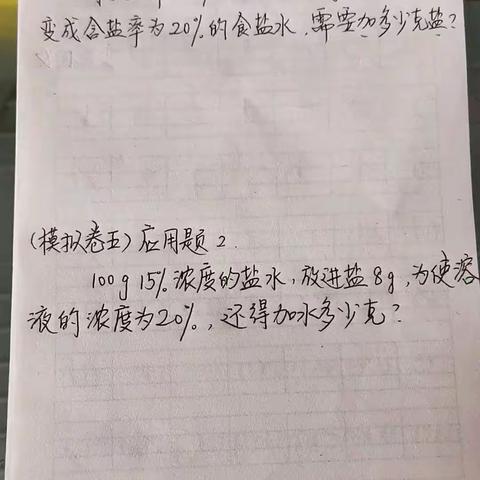 变成含盐率为20%的食盐水，需要加多少克盐？
(模拟卷五) 应用题 2.
100g 15%浓度的盐水，放进盐8g，为使溶
液的浓度为20%，还得加水多少克？